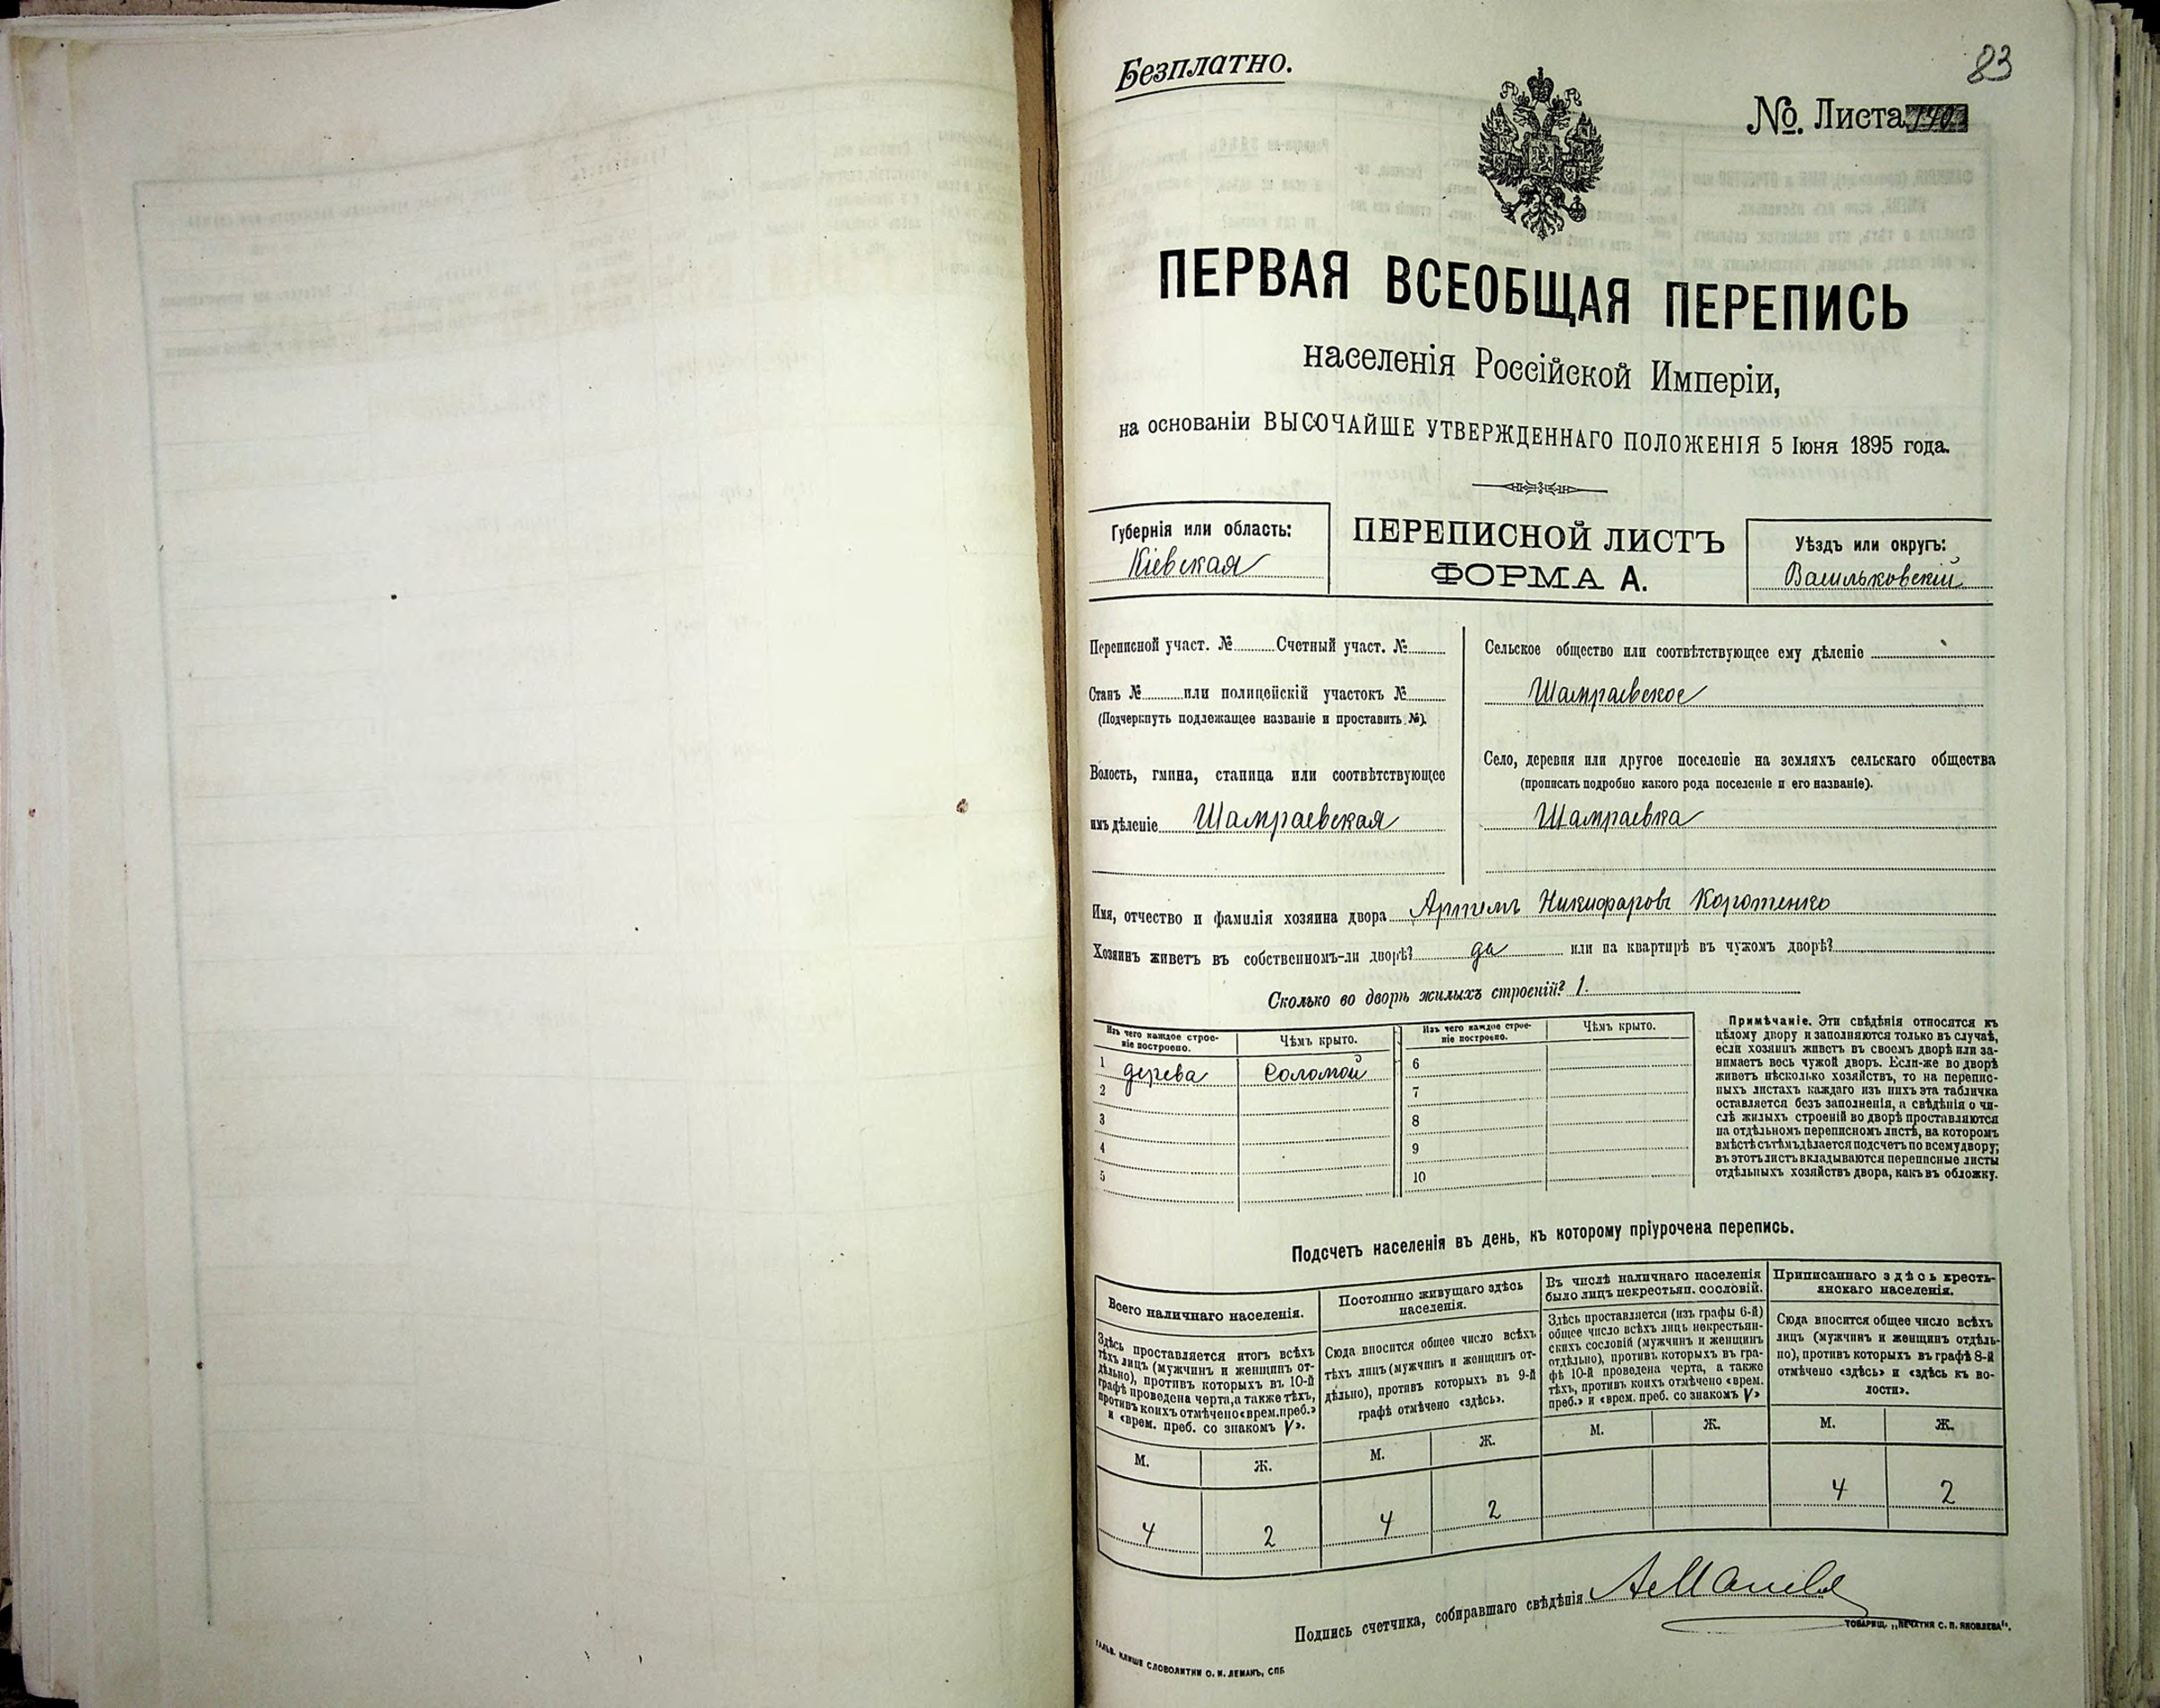 Безплатно.
83
№. Листа
ПЕРВАЯ ВСЕОБЩАЯ ПЕРЕПИСЬ
населенія Россійской Имперіи,
на основаніи ВЫСОЧАЙШЕ УТВЕРЖДЕННАГО ПОЛОЖЕНІЯ 5 Іюня 1895 года.
Губернія или область:
Кіевская
ПЕРЕПИСНОЙ ЛИСТЪ
ФОРМА А.
Уѣздъ или округъ:
Васильковскій
Переписной участ. № Счетный участ. №
Станъ № или полицейскій участокъ №
(Подчеркнуть подлежащее названіе и проставить №).
Волость, гмина, станица или соотвѣтствующее
имъ дѣленіе Шамраевская
Сельское общество или соотвѣтствующее ему дѣленіе
Шамраевское
Село, деревня или другое поселеніе на земляхъ сельскаго общества
(прописать подробно какого рода поселеніе и его названіе).
Шамраевка
Имя, отчество и фамилія хозяина двора Артемъ Никифаровъ Коротенко
Хозяинъ живетъ въ собственномъ-ли дворѣ? да или на квартирѣ въ чужомъ дворѣ?
Сколько во дворѣ жилыхъ строеній? 1.
Изъ чего каждое строе-
ніе построено.
Чѣмъ крыто.
Изъ чего каждое строе-
ніе построено.
Чѣмъ крыто.
1 дерева соломой 6
2 7
3 8
4 9
5 10
Примѣчаніе. Эти свѣдѣнія относятся къ
цѣлому двору и заполняются только въ случаѣ,
если хозяинъ живетъ въ своемъ дворѣ или за-
нимаетъ весь чужой дворъ. Если-же во дворѣ
живетъ нѣсколько хозяйствъ, то на перепис-
ныхъ листахъ каждаго изъ нихъ эта табличка
оставляется безъ заполненія, а свѣдѣнія о чи-
слѣ жилыхъ строеній во дворѣ проставляются
на отдѣльномъ переписномъ листѣ, на которомъ
вмѣстѣ съ тѣмъ дѣлается подсчетъ по всему двору;
въ этотъ листъ вкладываются переписные листы
отдѣльныхъ хозяйствъ двора, какъ въ обложку.
Подсчетъ населенія въ день, къ которому пріурочена перепись.
Всего наличнаго населенія.
Здѣсь проставляется итогъ всѣхъ
тѣхъ лицъ (мужчинъ и женщинъ от-
дѣльно), противъ которыхъ въ 10-й
графѣ проведена черта, а также тѣхъ,
противъ коихъ отмѣчено «врем. преб.»
и «врем. преб. со знакомъ V».
М. Ж.
4 2
Постоянно живущаго здѣсь
населенія.
Сюда вносится общее число всѣхъ
тѣхъ лицъ (мужчинъ и женщинъ от-
дѣльно), противъ которыхъ въ 9-й
графѣ отмѣчено «здѣсь».
М. Ж.
4 2
Въ числѣ наличнаго населенія
было лицъ некрестьян. сословій.
Здѣсь проставляется (изъ графы 6-й)
общее число всѣхъ лицъ некрестьян-
скихъ сословій (мужчинъ и женщинъ
отдѣльно), противъ которыхъ въ гра-
фѣ 10-й проведена черта, а также
тѣхъ, противъ коихъ отмѣчено «врем.
преб.» и «врем. преб. со знакомъ V»
М. Ж.
Приписаннаго здѣсь кресть-
янскаго населенія.
Сюда вносится общее число всѣхъ
лицъ (мужчинъ и женщинъ отдѣль-
но), противъ которыхъ въ графѣ 8-й
отмѣчено «здѣсь» и «здѣсь къ во-
лости».
М. Ж.
4 2
Подпись счетчика, собиравшаго свѣдѣнія
ТОВАРИЩ. „ПЕЧАТНЯ С. П. ЯКОВЛЕВА".
ГАЛЬВ. КЛИШЕ СЛОВОЛИТНИ О. И. ЛЕМАНЪ, СПБ